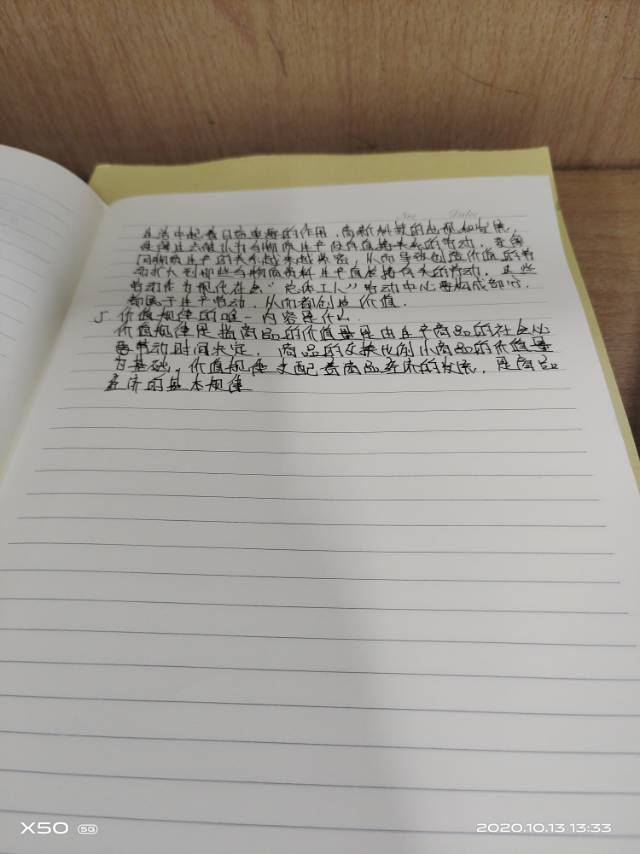 No. Date.
生活中起着日益重要的作用,高新科技的出现和发展,
使得过去被认为与物质生产没有直接关系的劳动,在
同物质生产的关系越来越紧密,从而导致创造价值的劳
动扩大到那些与物质资料生产直接接有关的劳动,这些
劳动作为现代社会“总体工人”劳动中必要构成部分,
都属于生产劳动,从而都创造价值.
5 价值规律的唯一内容是什么
价值规律是指商品的价值量是由生产商品的社会必
要劳动时间决定,商品的交换比例以商品的价值量
为基础,价值规律支配着商品经济的发展,是商品
经济的基本规律
X50 5G
2020.10.13 13:33